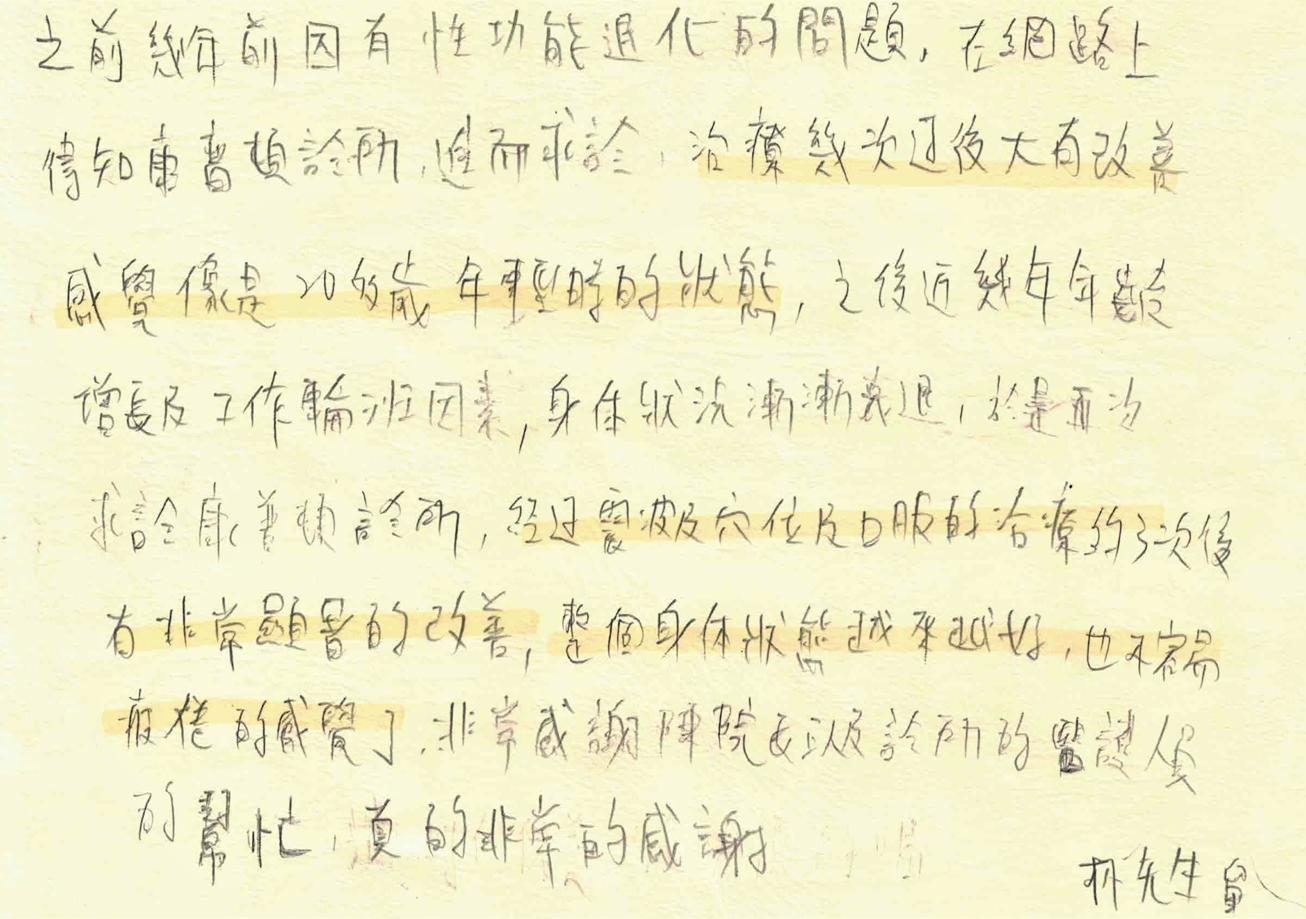 之前幾年前因有性功能退化的問題，在網路上
得知康普頓診所，進而求診，治療幾次过後大有改善
感覺像是20多歲年輕時的狀態，之後近幾年年齡
增長及工作輪班因素，身体狀況漸漸衰退，於是再次
求診康普頓診所，經过震波及穴位及口服的治療約3次後
有非常顯著的改善，整個身体狀態越來越好，也不容易
疲倦的感覺了，非常感謝陳院長以及診所的醫護人員
的幫忙，真的非常的感謝
林先生